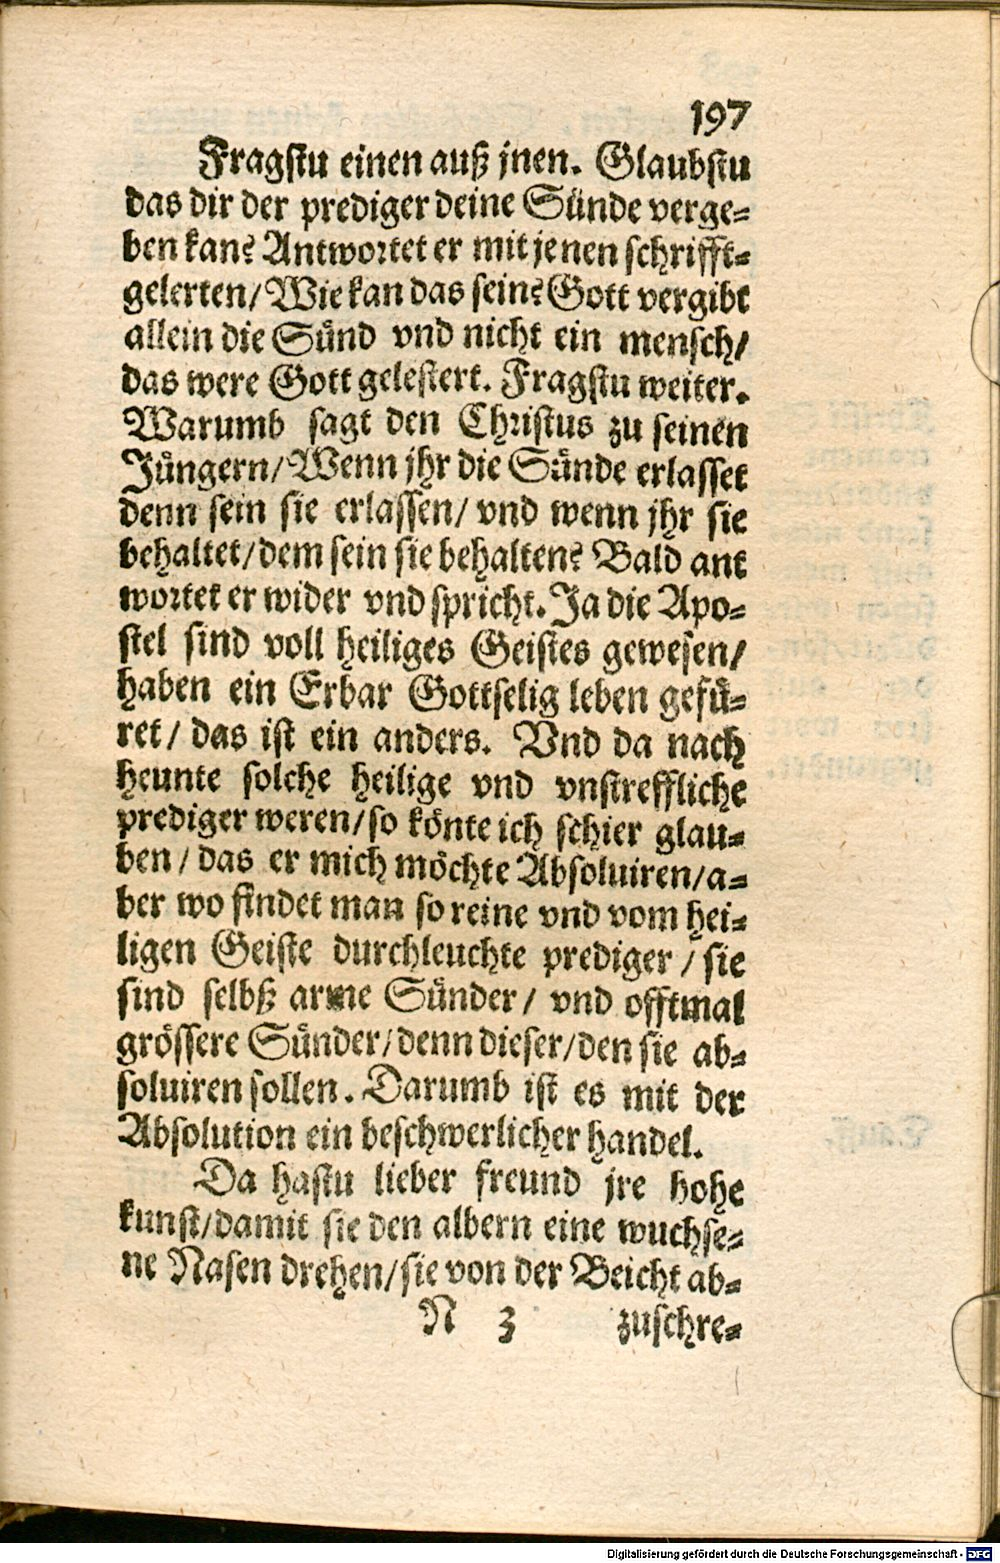 197
Fragstu einen auß jnen. Glaubstu
das dir der prediger deine Sünde verge=
ben kan? Antwortet er mit jenen schrifft=
gelerten/ Wie kan das sein? Gott vergibt
allein die Sünd vnd nicht ein mensch/
das were Gott gelestert. Fragstu weiter.
Warumb sagt den Christus zu seinen
Jüngern/ Wenn jhr die Sünde erlasset
denn sein sie erlassen/ vnd wenn jhr sie
behaltet/ dem sein sie behalten? Bald ant
wortet er wider vnd spricht. Ja die Apo=
stel sind voll heiliges Geistes gewesen/
haben ein Erbar Gottselig leben gefü=
ret/ das ist ein anders. Vnd da nach
heunte solche heilige vnd vnstreffliche
prediger weren/ so könte ich schier glau=
ben/ das er mich möchte Absoluiren/ a=
ber wo findet man so reine vnd vom hei=
ligen Geiste durchleuchte prediger/ sie
sind selbß arme Sünder/ vnd offtmal
grössere Sünder/ denn dieser/ den sie ab=
soluiren sollen. Darumb ist es mit der
Absolution ein beschwerlicher handel.
Da hastu lieber freund jre hohe
kunst/ damit sie den albern eine wuchse=
ne Nasen drehen/ sie von der Beicht ab=
N 3 zuschre=
Digitalisierung gefördert durch die Deutsche Forschungsgemeinschaft - DFG